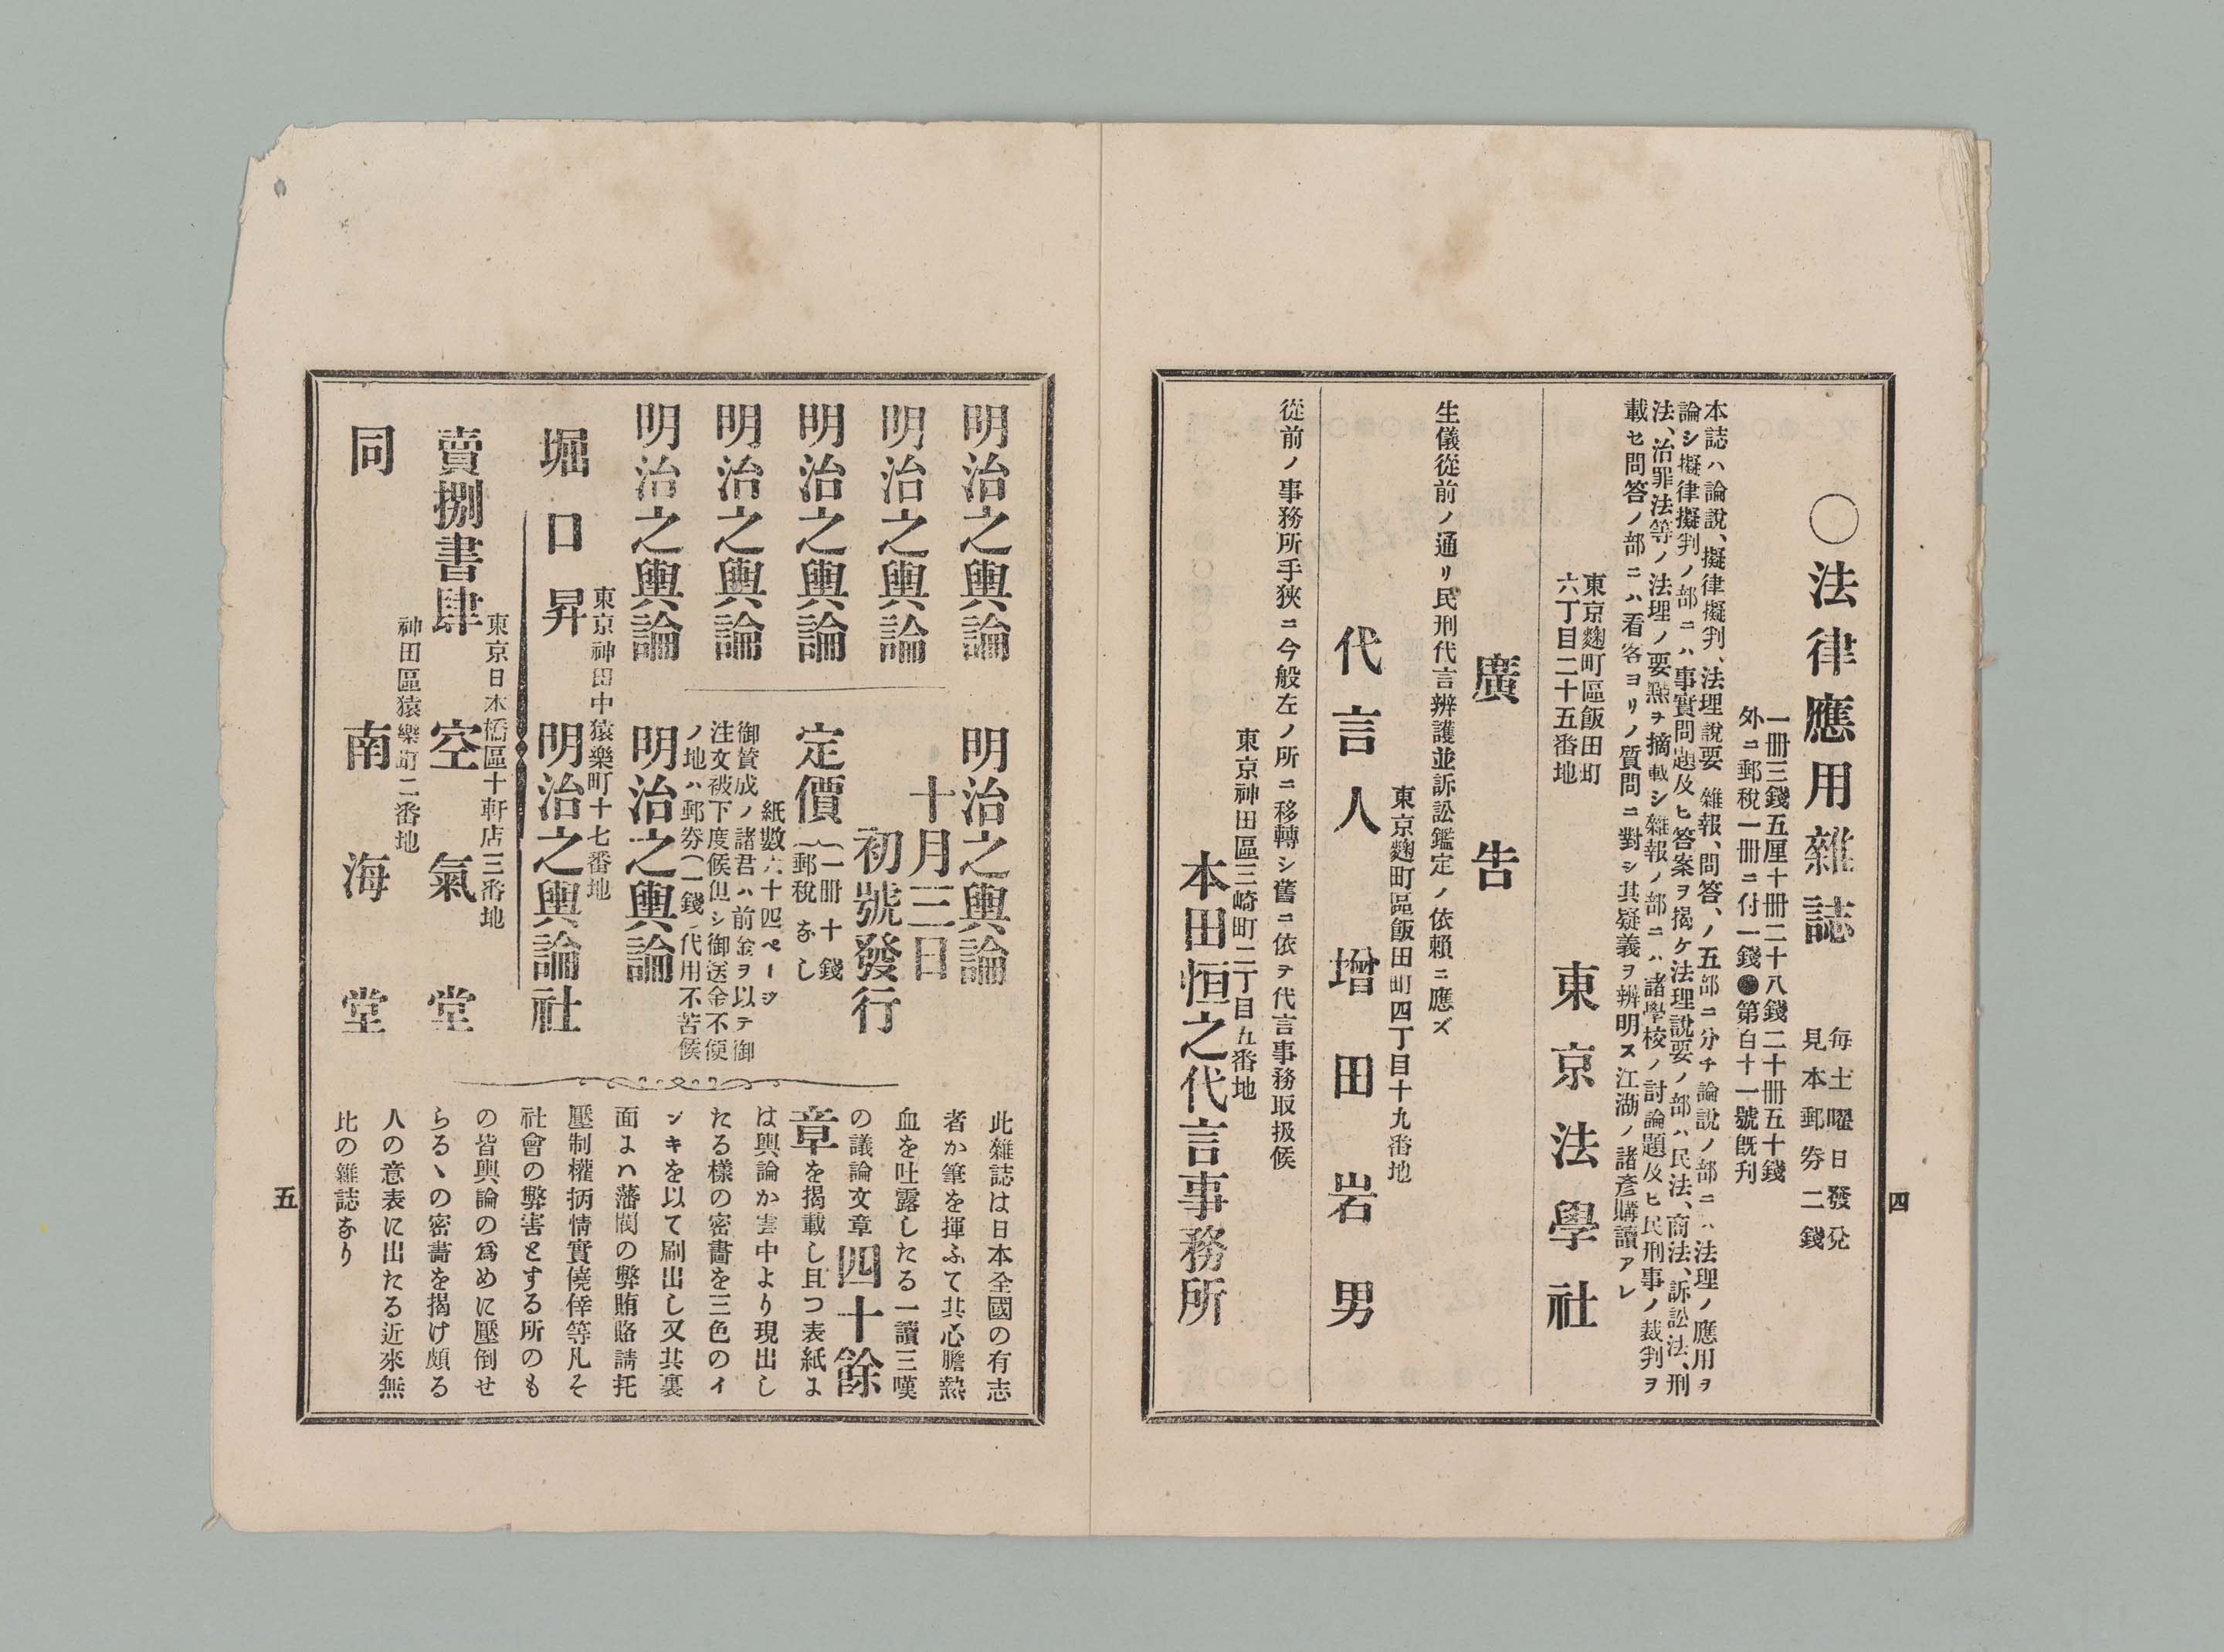 四
〇法律應用雜誌
每土曜日發兌
見本郵券二錢
一冊三錢五厘十冊二十八錢二十冊五十錢
外ニ郵稅一冊ニ付一錢●第百十一號旣刊
本誌ハ論說、擬律擬判、法理說要 雜報、問答、ノ五部ニ分チ論說ノ部ニハ法理ノ應用ヲ
論シ擬律擬判ノ部ニハ事實問題及ヒ答案ヲ揭ケ法理說要ノ部ハ民法、商法、訴訟法、刑
法、治罪法等ノ法理ノ要㸃ヲ摘載シ雜報ノ部ニハ諸學校ノ討論題及ヒ民刑事ノ裁判ヲ
載セ問答ノ部ニハ看客ヨリノ質問ニ對シ其疑義ヲ辨明ス江湖ノ諸彥購讀アレ
東京麴町區飯田町
六丁目二十五番地
東京法學社
廣告
生儀從前ノ通リ民刑代言辨護並訴訟鑑定ノ依賴ニ應ズ
東京麴町區飯田町四丁目十九番地
代言人 增田岩男
從前ノ事務所手狹ニ今般左ノ所ニ移轉シ舊ニ依テ代言事務取扱候
東京神田區三崎町二丁目九番地
本田恒之代言事務所
明治之輿論
明治之輿論
明治之輿論
明治之輿論
明治之輿論
明治之輿論
十月三日
初號發行
紙數六十四ページ
定價
一冊 十錢
郵稅 なし
御賛成ノ諸君ハ前金ヲ以テ御
注文被下度候但シ御送金不便
ノ地ハ郵券(一錢)代用不苦候
明治之輿論
東京神田中猿樂町十七番地
堀口昇
明治之輿論社
東京日本橋區十軒店三番地
賣捌書肆 空氣堂
神田區猿樂町二番地
同 南海堂
此雜誌は日本全國の有志
者か筆を揮ふて其心膽熱
血を吐露したる一讀三嘆
の議論文章四十餘
章を揭載し且つ表紙に
は輿論か雲中より現出し
たる樣の密畵を三色のイ
ンキを以て刷出し又其裏
面にハ藩閥の弊賄賂請托
壓制權抦情實僥倖等凡そ
社會の弊害とする所のも
の皆輿論の爲めに壓倒せ
らるゝの密畵を揭げ頗る
人の意表に出たる近來無
比の雜誌なり
五